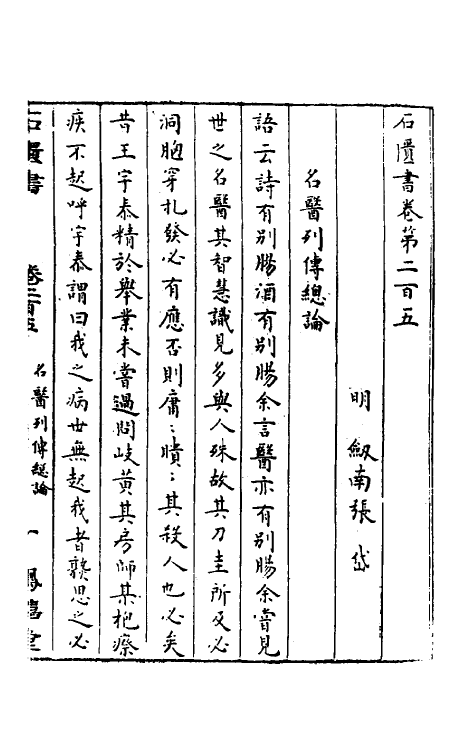 石匱書卷第二百五
明 劔南張 岱
名醫列傳總論
語云詩有別腸酒有別腸余言醫亦有別腸余嘗見
世之名醫其智慧識見多與人殊故其刀圭所及必
洞胞穿札發必有應否則庸:瞶:其殺人也必矣
昔王宇泰精於舉業未嘗過問岐黄其房師某抱瘵
疾不起呼宇泰謂曰我之病世無起我者龔思之必
石匱書 卷二百五 名醫列傳總論 一 鳳嬉堂